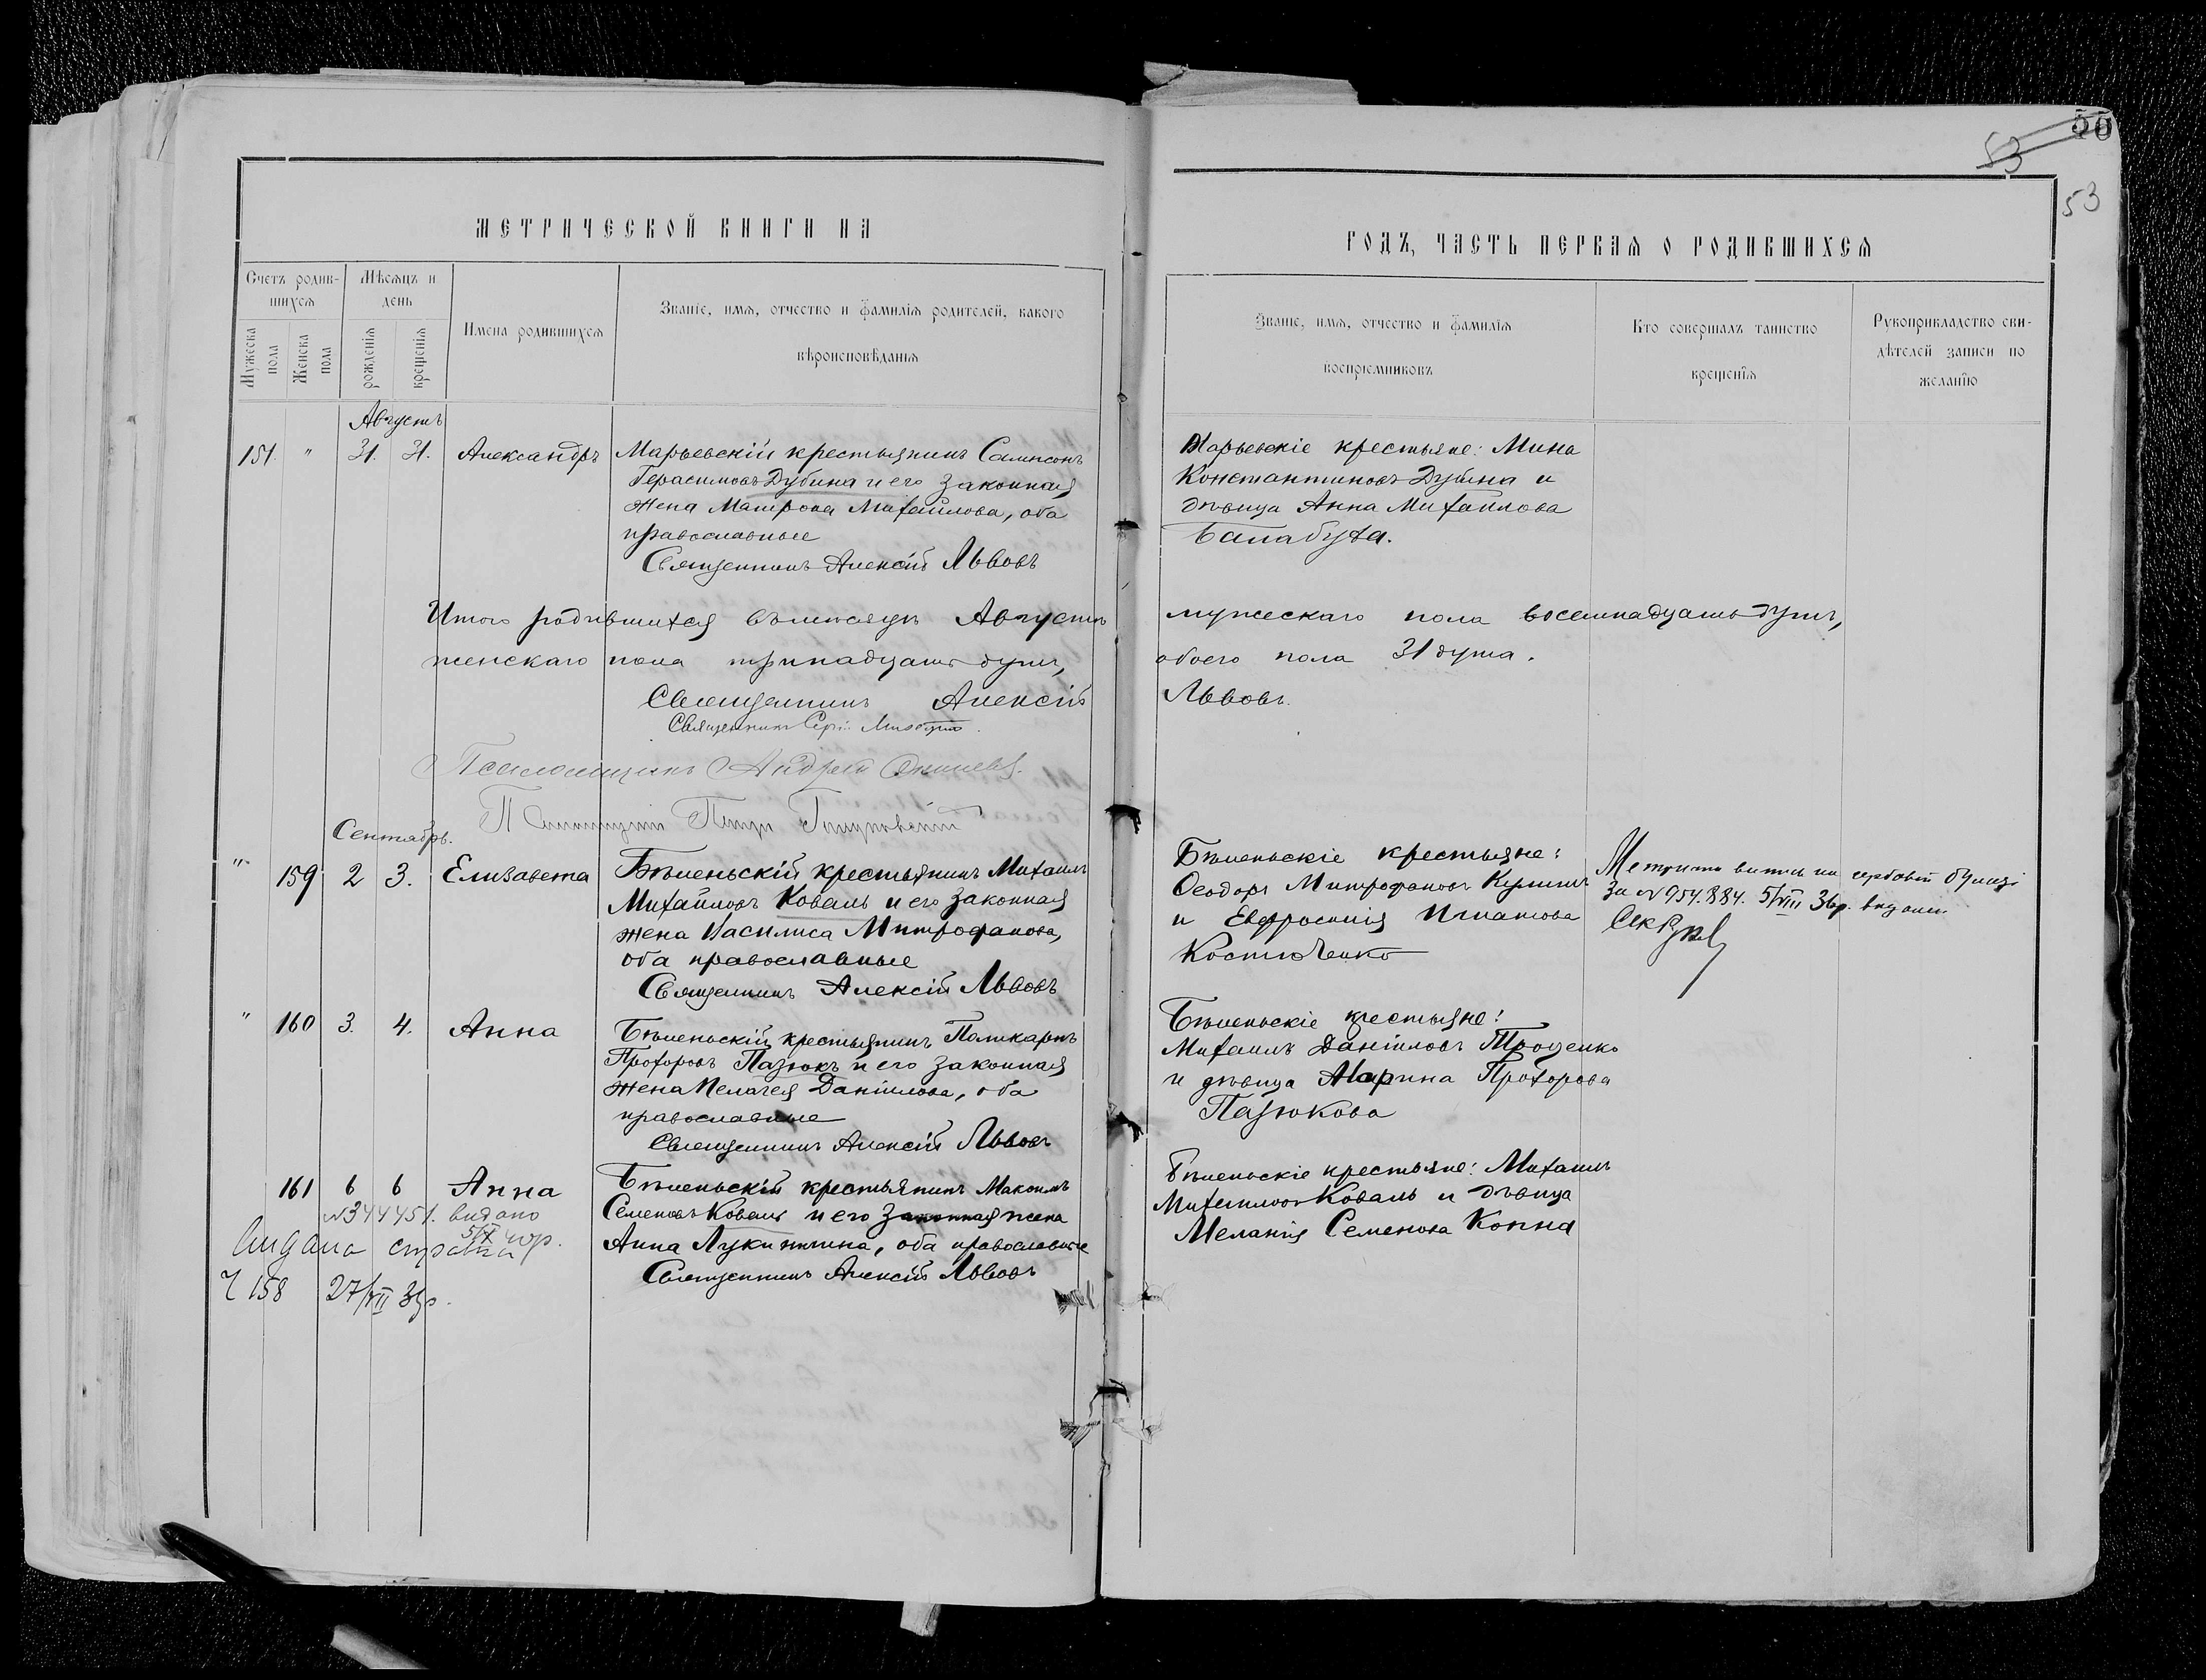 53
53
МЕТРИЧЕСКОЙ КНИГИ НА
ГОДЪ, ЧАСТЬ ПЕРВАЯ О РОДИВШИХСЯ
Счетъ родив-
шихся
Мѣсяцъ и
день
Мужеска
пола
Женска
пола
рожденія
крещенія
Имена родившихся
Званіе, имя, отчество и фамилія родителей, какого
вѣроисповѣданія
Званіе, имя, отчество и фамилія
воспріемниковъ
Кто совершалъ таинство
крещенія
Рукоприкладство сви-
дѣтелей записи по
желанію
Августъ
151. " 31. 31. Александръ
Марьевскій крестьянинъ Сампсонъ
Герасимовъ Дубина и его законная
жена Матрона Михайлова, оба
православные
Священникъ Алексій Львовъ
Марьевскіе крестьяне: Мина
Константиновъ Дубина и
дѣвица Анна Михайлова
Балабуха.
Итого родившихся въ мѣсяцѣ Августѣ мужескаго пола восемнадцать душъ,
женскаго пола тринадцать душъ, обоего пола 31 душа.
Священникъ Алексій Львовъ.
Священникъ
Псаломщикъ Андрей
Псаломщикъ Петръ
Сентябрь.
" 159 2 3. Елизавета
Бѣленьскій крестьянинъ Михаилъ
Михайловъ Коваль и его законная
жена Василиса Митрофанова,
оба православные
Священникъ Алексій Львовъ
Бѣленьскіе крестьяне:
Ѳеодоръ Митрофановъ
и Евфросинія Игнатова
Костюченко
за № 954.884. 5/VIII 36р. видано
" 160 3. 4. Анна
Бѣленьскій крестьянинъ Поликарпъ
Прохоровъ Пазюкъ и его законная
жена Пелагея Даніилова, оба
православные
Священникъ Алексій Львовъ
Бѣленьскіе крестьяне:
Михаилъ Даніиловъ Троценко
и дѣвица Марина Прохорова
Пазюкова
161 6 6 Анна
Бѣленьскій крестьянинъ Максимъ
Семеновъ Коваль и его законная жена
Анна Лукинична, оба православные
Священникъ Алексій Львовъ
Бѣленьскіе крестьяне: Михаилъ
Михайловъ Коваль и дѣвица
Меланія Семенова Копна
№344451. видано
5/IX 40р.
видана
158 27/VII